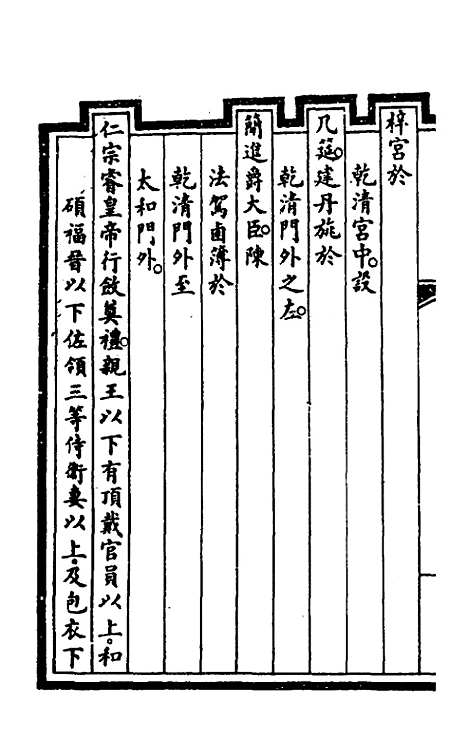 梓宮於
乾清宮中。設
几筵。建丹旐於
乾清門外之左。
簡進爵大臣。陳
法駕鹵簿於
乾清門外至
太和門外。
仁宗睿皇帝行斂奠禮。親王以下有頂戴官員以上。和
碩福晉以下佐領三等侍衛妻以上。及包衣下